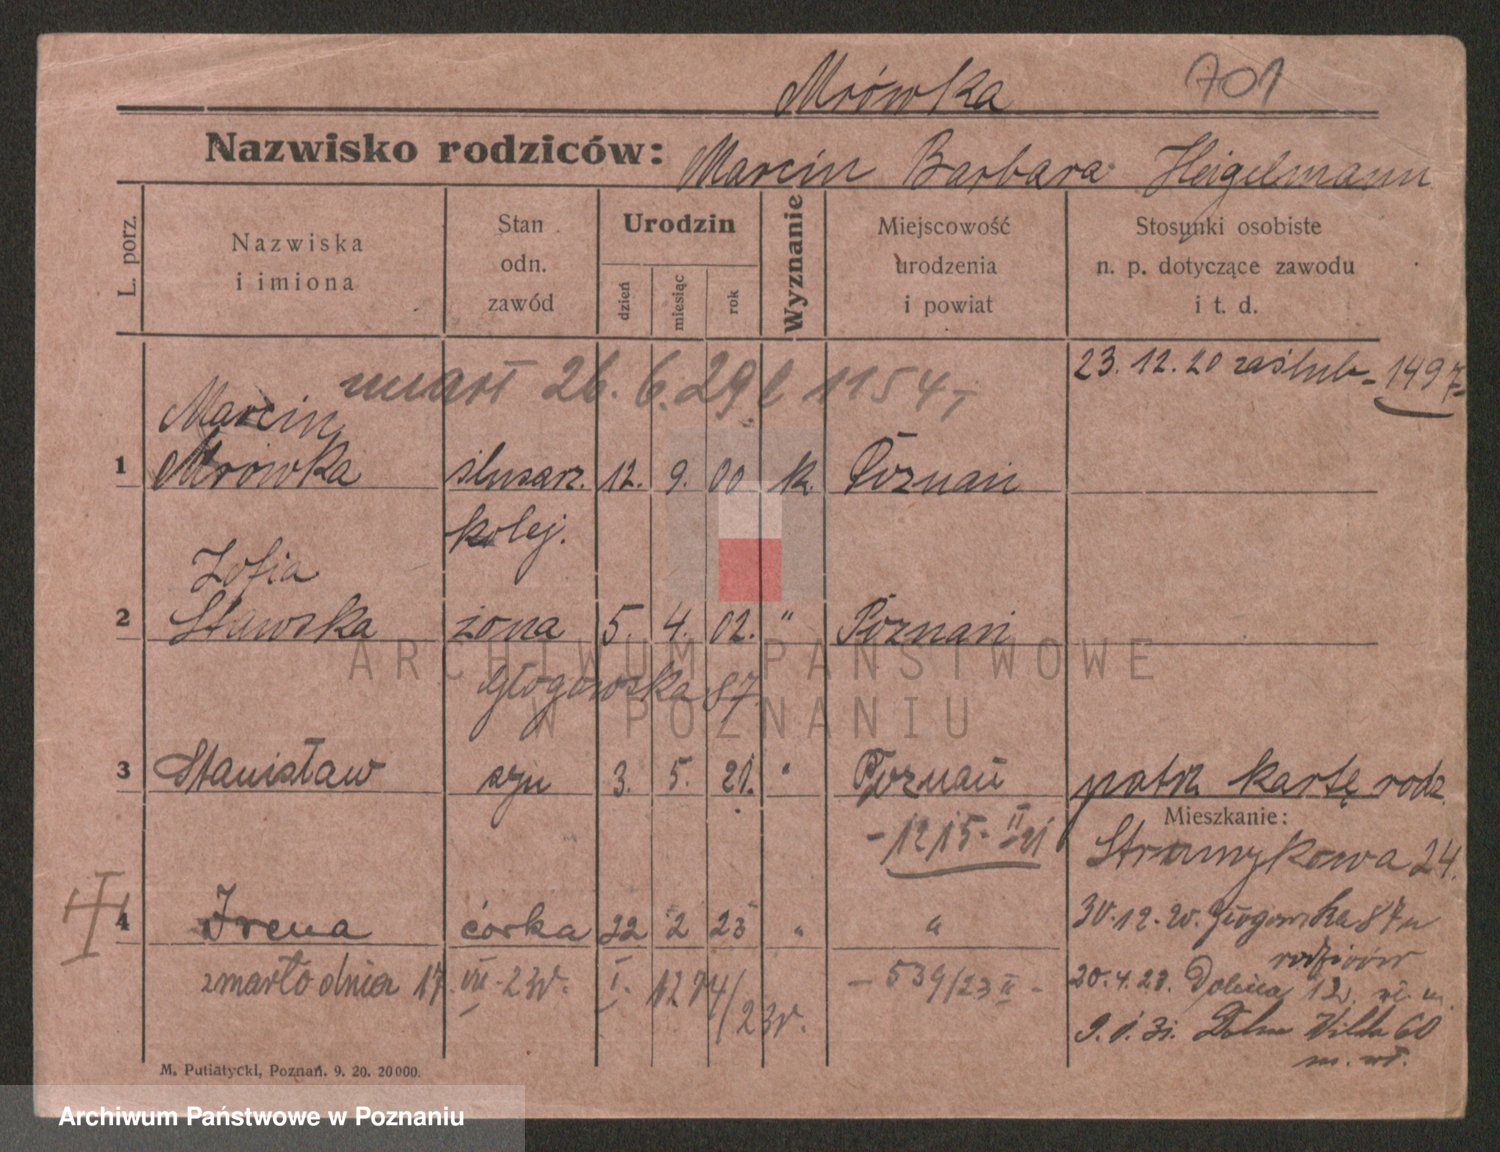 Mrówka 701
Nazwisko rodziców: Marcin Barbara Heigelmann
L. porz.
Nazwiska i imiona
Stan odn. zawód
Urodzin
dzień
miesiąc
rok
Wyznanie
Miejscowość urodzenia i powiat
Stosunki osobiste n. p. dotyczące zawodu i t. d.
23.12.20 zaślub. 1497
umarł 26.6.29 1154
Marcin
1 Mrówka ślusarz. 12. 9. 00 k. Poznań
kolej.
Zofia
2 Stawska żona 5. 4. 02. " Poznań
Głogowska 87.
3 Stanisław syn 3. 5. 21. " Poznań patrz kartę rodz.
Mieszkanie:
- 1215 - II 21
Strumykowa 24.
4 Irena córka 22 2 23 " "
30.12.20. Głogowska 87 u
rodziców
zmarło dnia 17. VII. 23r. I. 1274/23r. - 539/23 II -
20.4.28. Dolina 12
9. 6. 31. Dolna Wilda 60
m. wł.
M. Putiatycki, Poznań. 9. 20. 20000.
ARCHIWUM PAŃSTWOWE
W POZNANIU
Archiwum Państwowe w Poznaniu